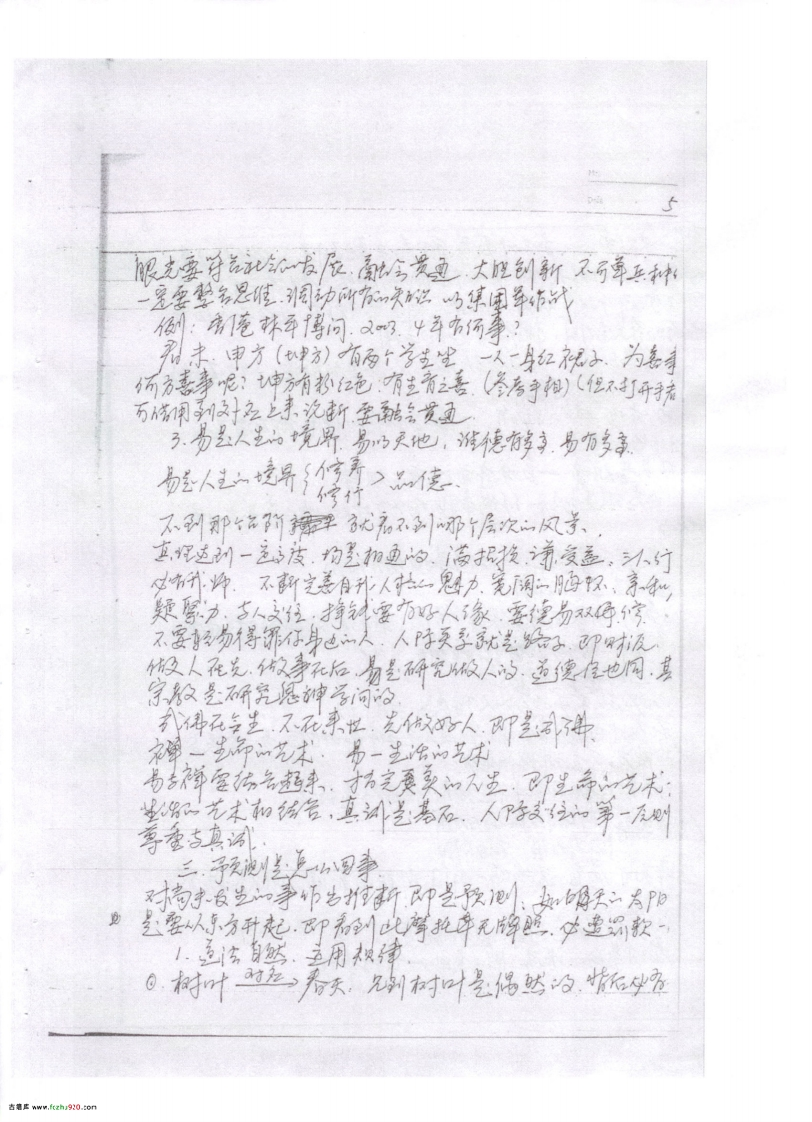 5
眼光要符合社会的发展、融会贯通、大胆创新 不可单兵种作
一定要整合思维、调动所有的知识 以集团军作战
例：林平博问、2003、4年有何事？
看未、申方（坤方）有两个学生 一人一身红裙子、为喜事
何方喜事呢？坤方有粉红色、有生育之喜、（参看手相）（但不打开手看
可信用到对应上来论断、要融会贯通
3、易是人生的境界、易以天地，准德有多高、易有多高、
易是人生的境界｛修养 修行｝品德、
不到那个台阶 就看不到哪个层次的风景、
真理达到一定高度、均是相通的、满招损、谦受益、三人行
必有我师、不断完善自我人格的魅力、宽阔的胸怀、亲和
凝聚力、与人交往、挣钱要有好人缘、要德易双修、
不要轻易得罪你身边的人、人际关系就是路子、即财源
做人在先、做事在后、易是研究做人的、道德经也同、其
宗教是研究思神学问的、
我佛在今生、不在来世、先做好人、即是我佛、
禅—生命的艺术、易—生活的艺术
易与禅要结合起来、才有完美的人生、即生命的艺术；
生活的艺术相结合、真诚是基石、人际交往的第一原则
尊重与真诚、
三、予测是怎么回事、
对尚未发生的事作出推断、即是予测、如明天的太阳
是要从东方升起、即看到此摩托车无牌照、必遭罚款、
1、道法自然、运用规律、
①、树叶 对应→ 春天、见到树叶是偶然的、背后必有
古墓库 www.fczhs920.com